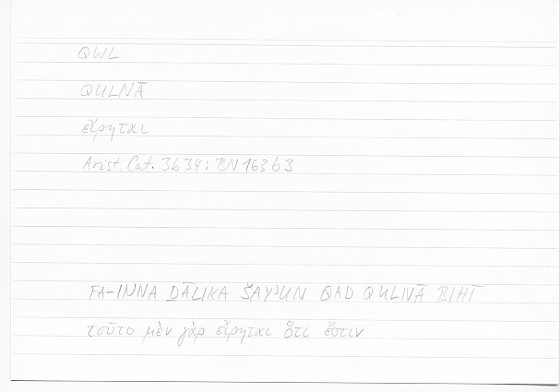 QWL
QULNĀ
εἴρηται
Arist. Cat. 3b34; BN 163b3
FA-INNA ḎĀLIKA ŠAYʾUN QAD QULNĀ BIHĪ
τοῦτο μὲν γὰρ εἴρηται ὅτι ἔστιν